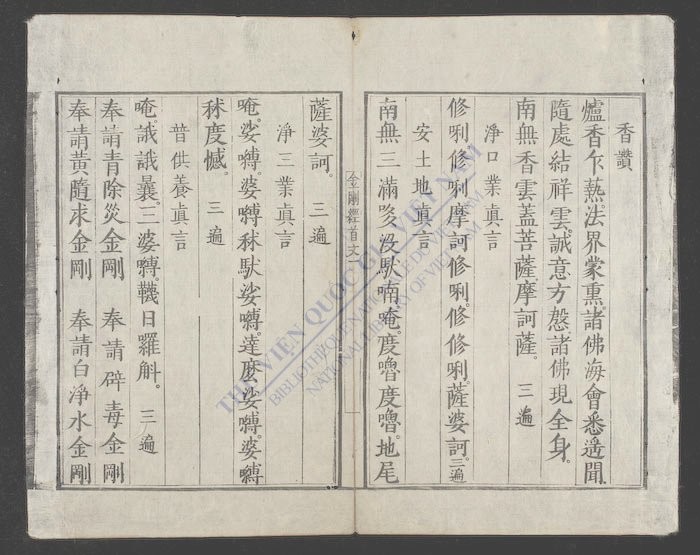 香讚
爐香乍爇。法界蒙熏。諸佛海會悉遥聞
隨處結祥雲。誠意方慇諸佛現全身。
南無香雲蓋菩薩。摩訶薩。三遍
淨口業眞言
修唎修唎。摩訶修唎。修修唎。薩婆訶。三遍
安土地眞言
南無三滿哆沒馱喃。唵。度嚕度嚕。地尾
金剛經首文 一
薩婆訶。三遍
淨三業眞言
唵。娑嚩。婆嚩秫馱娑嚩。達麽娑嚩。婆嚩
秫度憾。三遍
普供養眞言
唵。誐誐曩。三婆嚩韈日羅斛。三遍
奉請青除災金剛 奉請辟毒金剛
奉請黃隨求金剛 奉請白淨水金剛
THƯ VIỆN QUỐC GIA VIỆT NAM
BIBLIOTHÈQUE NATIONALE DU VIETNAM
NATIONAL LIBRARY OF VIETNAM